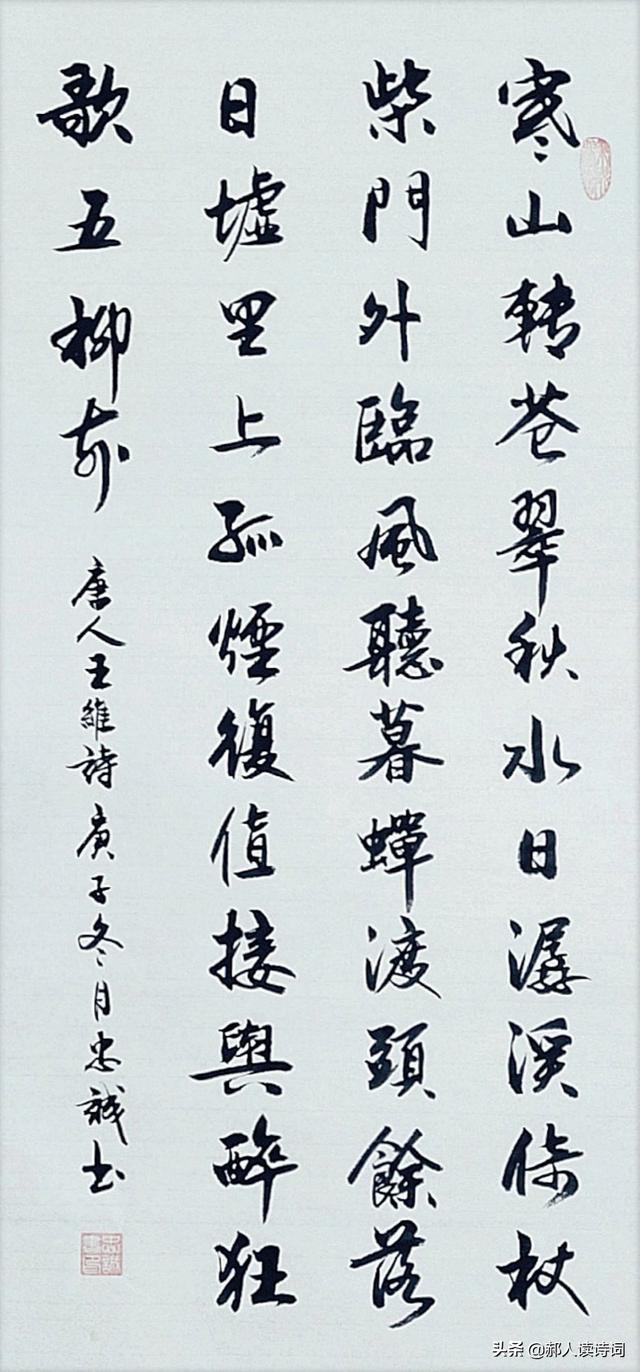 寒山轉苍翠秋水日潺湲倚杖
柴門外臨風聽暮蟬渡頭餘落
日墟里上孤煙復值接輿醉狂
歌五柳前
唐人王維詩庚子冬月忠誠书
头条 @郝人读诗词